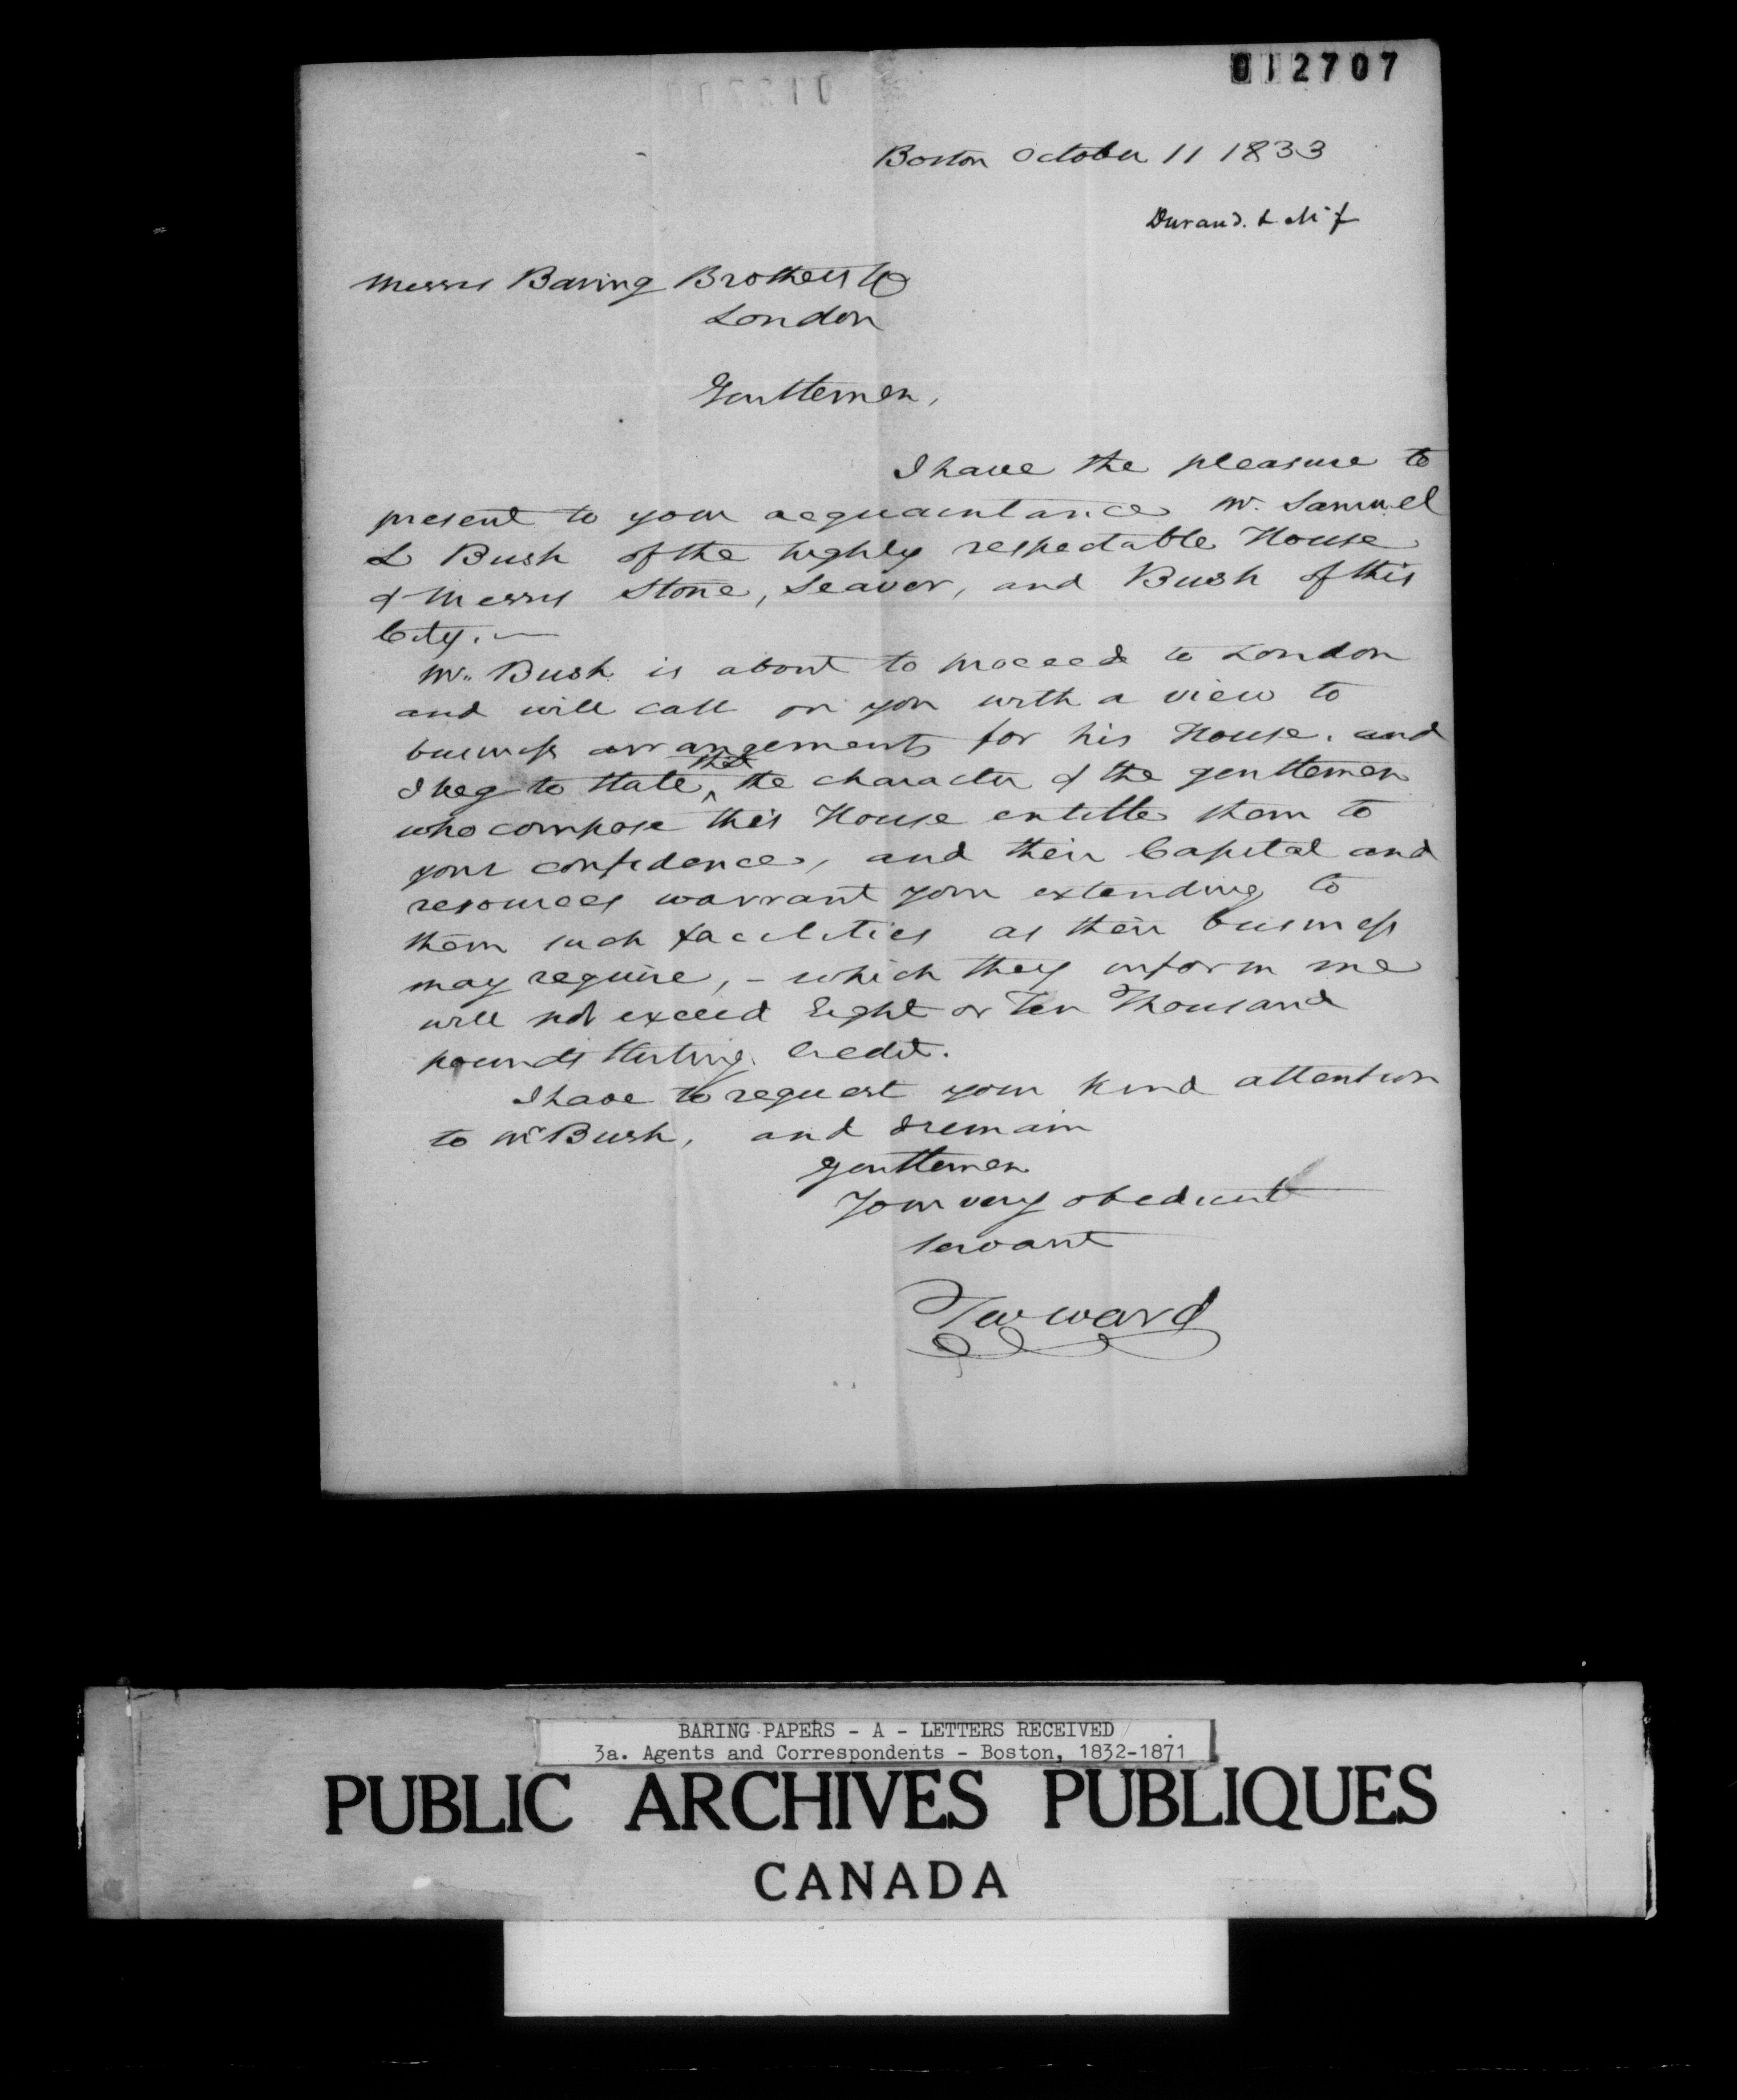 012707
Boston October 11 1833
Messrs Baring Brothers & Co
London
Gentlemen,
I have the pleasure to
present to your acquaintance Mr. Samuel
L Bush of the highly respectable House
of Messrs Stone, Seaver, and Bush of this
City. —
Mr. Bush is about to proceed to London
and will call on you with a view to
business arrangements for his House. and
I beg to state, that the character of the gentlemen
who compose this House entitle them to
your confidence, and their Capital and
resources warrant your extending to
them such facilities as their business
may require, - which they inform me
will not exceed Eight or Ten Thousand
pounds Sterling Credit.
I have to request your kind attention
to Mr Bush, and I remain
Gentlemen
Your very obedient
Servant
TWWard
BARING PAPERS - A - LETTERS RECEIVED
3a. Agents and Correspondents - Boston, 1832-1871
PUBLIC ARCHIVES PUBLIQUES
CANADA